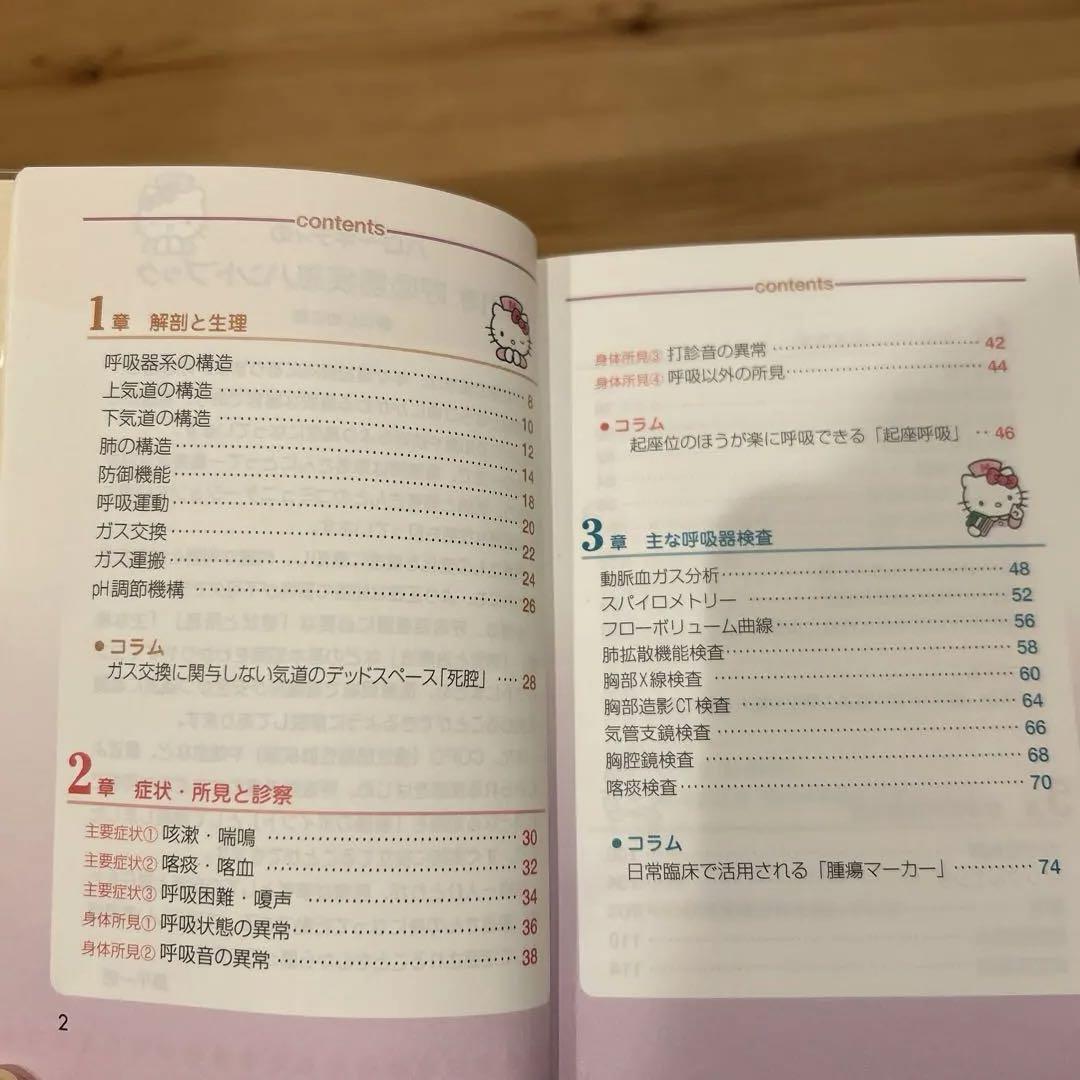 contents
1章 解剖と生理
呼吸器系の構造 ………… 8
上気道の構造 ………… 10
下気道の構造 ………… 12
肺の構造 ………… 14
防御機能 ………… 18
呼吸運動 ………… 20
ガス交換 ………… 22
ガス運搬 ………… 24
pH調節機構 ………… 26
●コラム
ガス交換に関与しない気道のデッドスペース「死腔」 … 28
2章 症状・所見と診察
主要症状① 咳漱・喘鳴 ………… 30
主要症状② 喀痰・喀血 ………… 32
主要症状③ 呼吸困難・嗄声 ………… 34
身体所見① 呼吸状態の異常 ………… 36
身体所見② 呼吸音の異常 ………… 38
2
contents
身体所見③ 打診音の異常 ………… 42
身体所見④ 呼吸以外の所見 ………… 44
●コラム
起座位のほうが楽に呼吸できる「起座呼吸」 … 46
3章 主な呼吸器検査
動脈血ガス分析 ………… 48
スパイロメトリー ………… 52
フローボリューム曲線 ………… 56
肺拡散機能検査 ………… 58
胸部X線検査 ………… 60
胸部造影CT検査 ………… 64
気管支鏡検査 ………… 66
胸腔鏡検査 ………… 68
喀痰検査 ………… 70
●コラム
日常臨床で活用される「腫瘍マーカー」 ………… 74